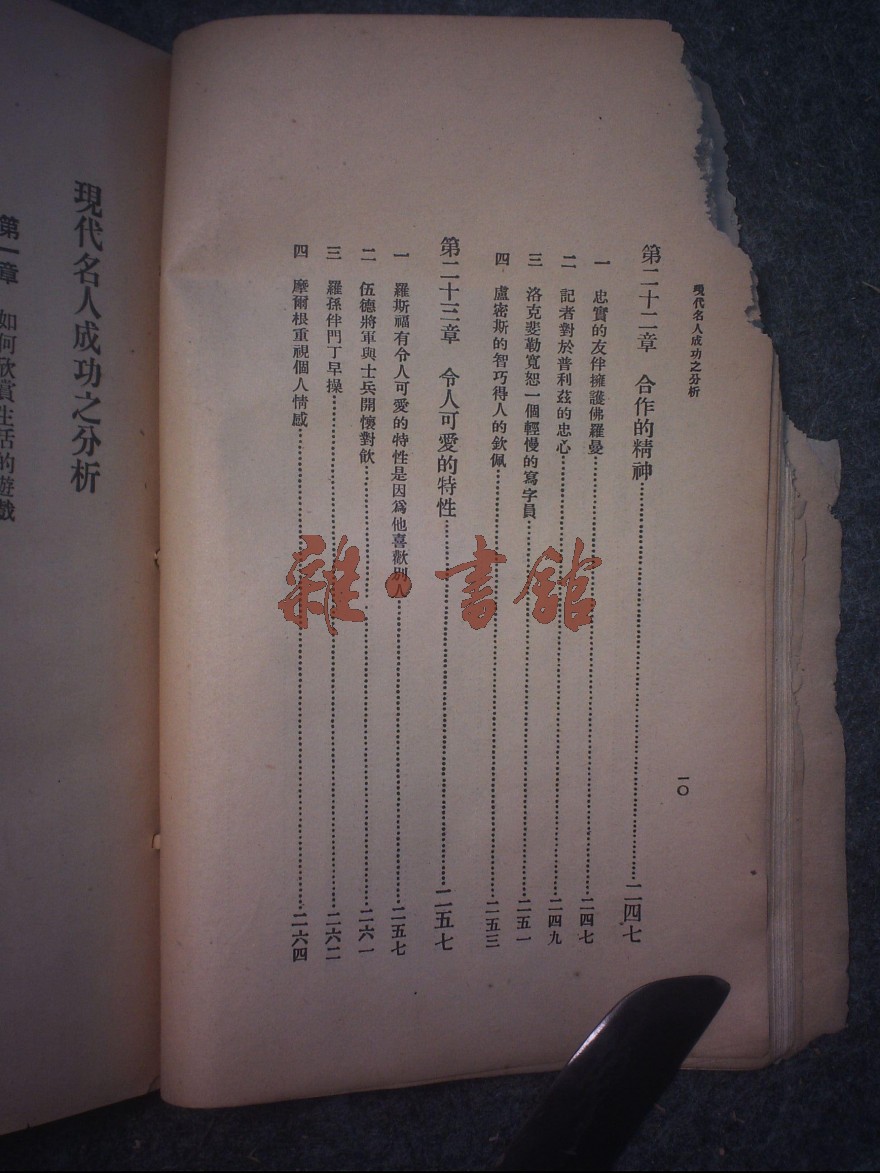 現代名人成功之分析
第二十二章 合作的精神……二四七
一 忠實的友伴擁護佛羅曼……二四七
二 記者對於普利茲的忠心……二四九
三 洛克斐勒寬恕一個輕慢的寫字員……二五一
四 盧密斯的智巧得人的欽佩……二五三
第二十三章 令人可愛的特性……二五七
一 羅斯福有令人可愛的特性是因爲他喜歡別人……二五七
二 伍德將軍與士兵開懷對飲……二六一
三 羅孫伴門丁早操……二六二
四 摩爾根重視個人情感……二六四
一〇
現代名人成功之分析
第一章 如何欣賞生活的遊戲
雜·書館